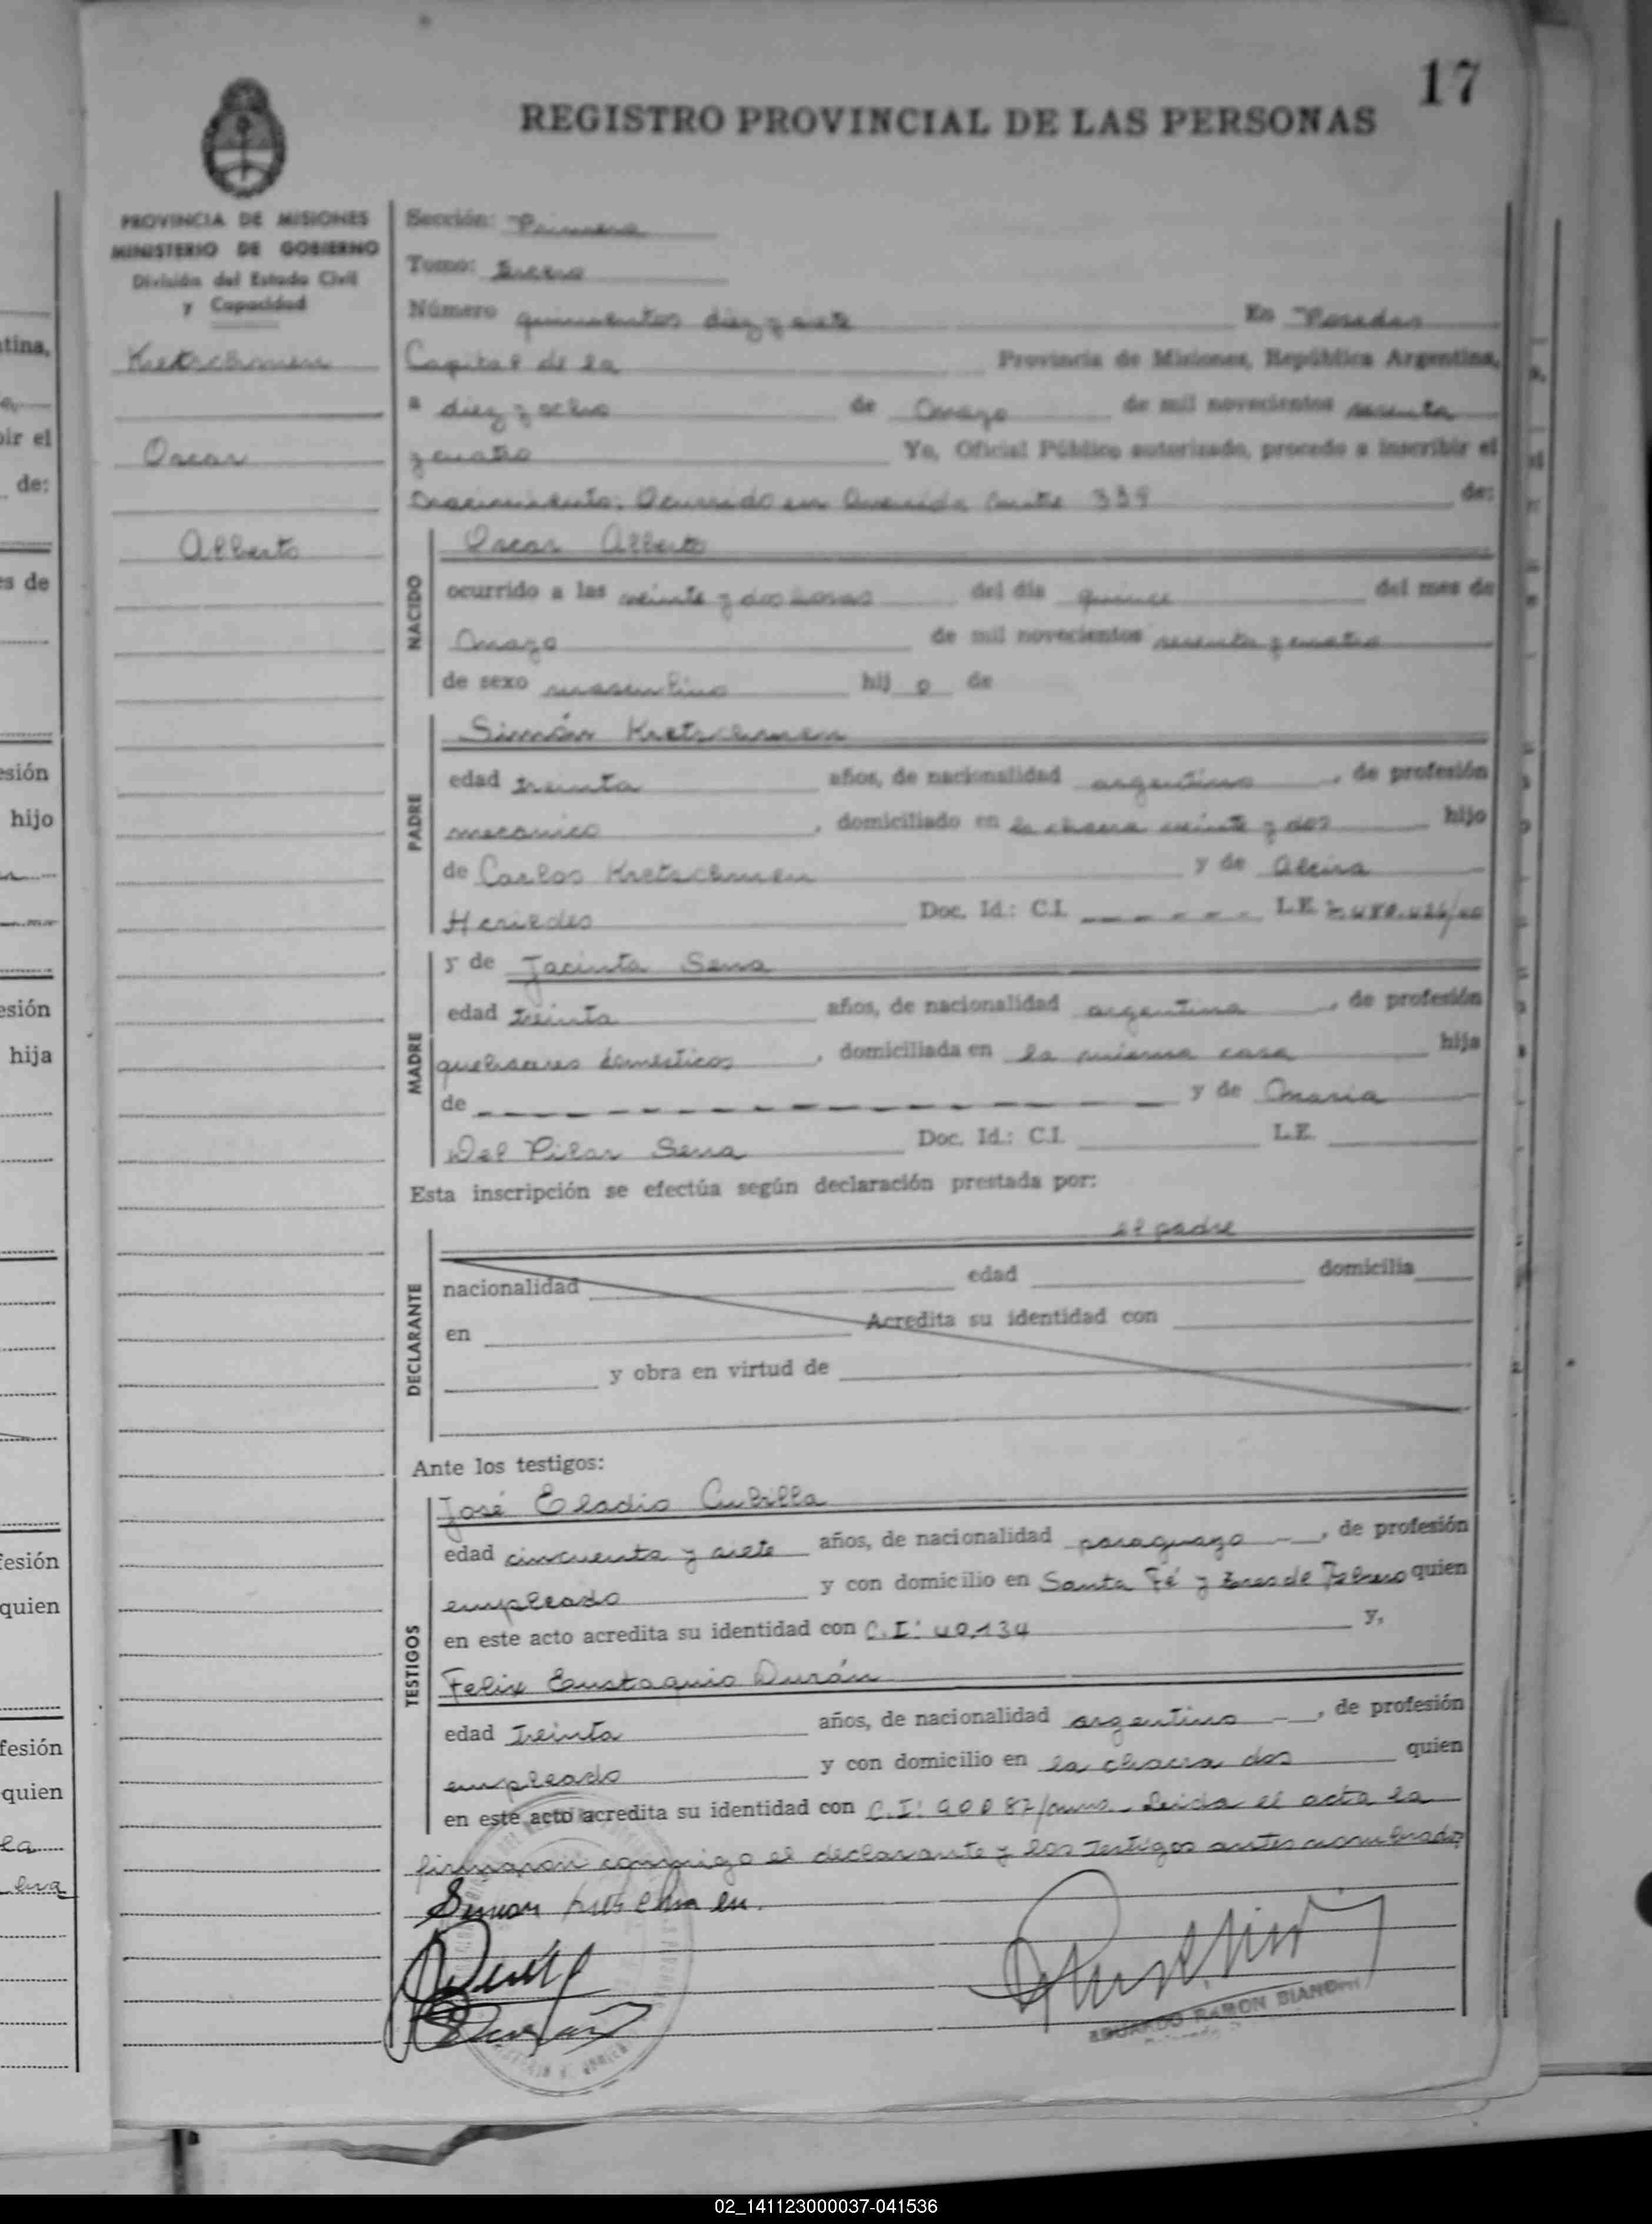 17
REGISTRO PROVINCIAL DE LAS PERSONAS
PROVINCIA DE MISIONES
MINISTERIO DE GOBIERNO
División del Estado Civil
y Capacidad
Kretschmen
Oscar
Alberto
Sección: Primera
Tomo: tercero
Número quinientos diez y siete En Posadas
Capital de la Provincia de Misiones, República Argentina,
a diez y ocho de Mayo de mil novecientos sesenta
y cuatro Yo, Oficial Público autorizado, procedo a inscribir el
Nacimiento: Ocurrido en Avenida Mitre 339 de:
NACIDO
Oscar Alberto
ocurrido a las veinte y dos horas del día quince del mes de
Mayo de mil novecientos sesenta y cuatro
de sexo masculino hij o de
PADRE
Simón Kretschmen
edad treinta años, de nacionalidad argentino, de profesión
mecánico, domiciliado en la chacra veinte y dos hijo
de Carlos Kretschmen y de Alcira
Doc. Id.: C.I. _ _ _ _ _ L.E.
MADRE
y de Jacinta Sena
edad treinta años, de nacionalidad argentina, de profesión
quehaceres domésticos, domiciliada en la misma casa hija
de _ _ _ _ _ y de Maria
Del Pilar Sena Doc. Id.: C.I. L.E.
Esta inscripción se efectúa según declaración prestada por:
DECLARANTE
el padre
nacionalidad edad domicilia
en Acredita su identidad con
y obra en virtud de
Ante los testigos:
TESTIGOS
José Eladio Cubilla
edad cincuenta y siete años, de nacionalidad paraguayo —, de profesión
empleado y con domicilio en Santa Fé y tres de Febrero quien
en este acto acredita su identidad con C.I: 40.134 y,
Felix Eustaquio Durán
edad treinta años, de nacionalidad argentino —, de profesión
empleado y con domicilio en la chacra dos quien
en este acto acredita su identidad con C.I: Leida el acta la
firmaron conmigo el declarante y los testigos antes nombrados
Simon Kretschmen.
EDUARDO RAMON BIANCHI
tina,
bir el
de:
es de
esión
hijo
esión
hija
fesión
quien
fesión
quien
la
02_141123000037-041536